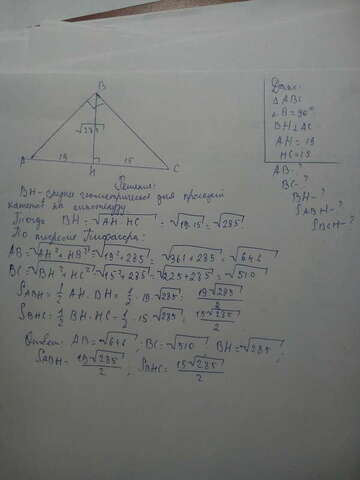 Дано:
△ABC
∠B = 90°
BH ⊥ AC
AH = 19
HC = 15
AB - ?
BC - ?
BH - ?
S ABH - ?
S BCH - ?
B
√285
A 19 H 15 C
Решение:
BH - среднее геометрическое для проекций
катетов на гипотенузу
Тогда BH = √AH·HC = √19·15 = √285
По теореме Пифагора:
AB = √AH²+HB² = √19²+285 = √361+285 = √646
BC = √BH²+HC² = √15²+285 = √225+285 = √510
S ABH = 1/2 AH·BH = 1/2 · 19 · √285 = 19√285/2
S BHC = 1/2 BH·HC = 1/2 · 15 √285 = 15√285/2
Ответ: AB = √646; BC = √510; BH = √285;
S ABH = 19√285/2; S BHC = 15√285/2